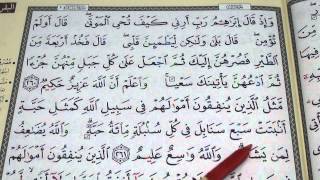 وَإِذْ قَالَ إِبْرَٰهِـۧمُ رَبِّ أَرِنِى كَيْفَ تُحْىِ ٱلْمَوْتَىٰ ۖ قَالَ أَوَلَمْ
تُؤْمِن ۖ قَالَ بَلَىٰ وَلَـٰكِن لِّيَطْمَئِنَّ قَلْبِى ۖ قَالَ فَخُذْ أَرْبَعَةً مِّنَ
ٱلطَّيْرِ فَصُرْهُنَّ إِلَيْكَ ثُمَّ ٱجْعَلْ عَلَىٰ كُلِّ جَبَلٍ مِّنْهُنَّ جُزْءًا
ثُمَّ ٱدْعُهُنَّ يَأْتِينَكَ سَعْيًا ۚ وَٱعْلَمْ أَنَّ ٱللَّهَ عَزِيزٌ حَكِيمٌ ٢٦٠
مَّثَلُ ٱلَّذِينَ يُنفِقُونَ أَمْوَٰلَهُمْ فِى سَبِيلِ ٱللَّهِ كَمَثَلِ حَبَّةٍ
أَنۢبَتَتْ سَبْعَ سَنَابِلَ فِى كُلِّ سُنۢبُلَةٍ مِّا۟ئَةُ حَبَّةٍ ۗ وَٱللَّهُ يُضَـٰعِفُ
لِمَن يَشَآءُ ۗ وَٱللَّهُ وَٰسِعٌ عَلِيمٌ ٢٦١ ٱلَّذِينَ يُنفِقُونَ أَمْوَٰلَهُمْ